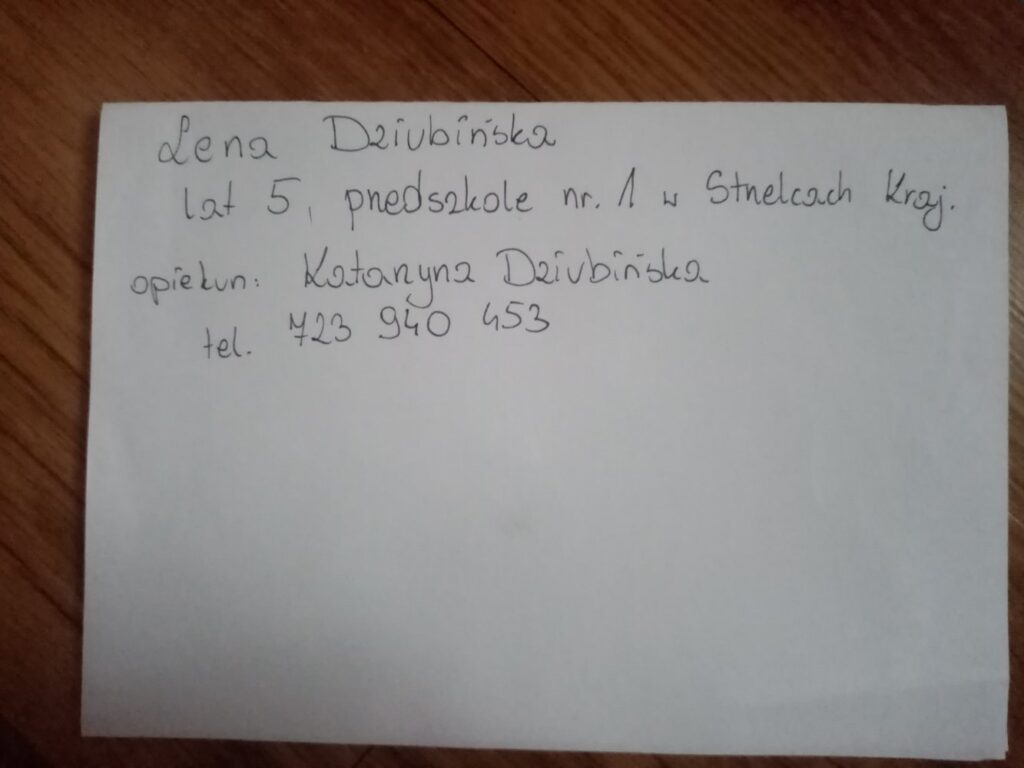 Lena Dziubińska
lat 5, przedszkole nr. 1 w Strzelcach Kraj.
opiekun: Katarzyna Dziubińska
tel. 723 940 453